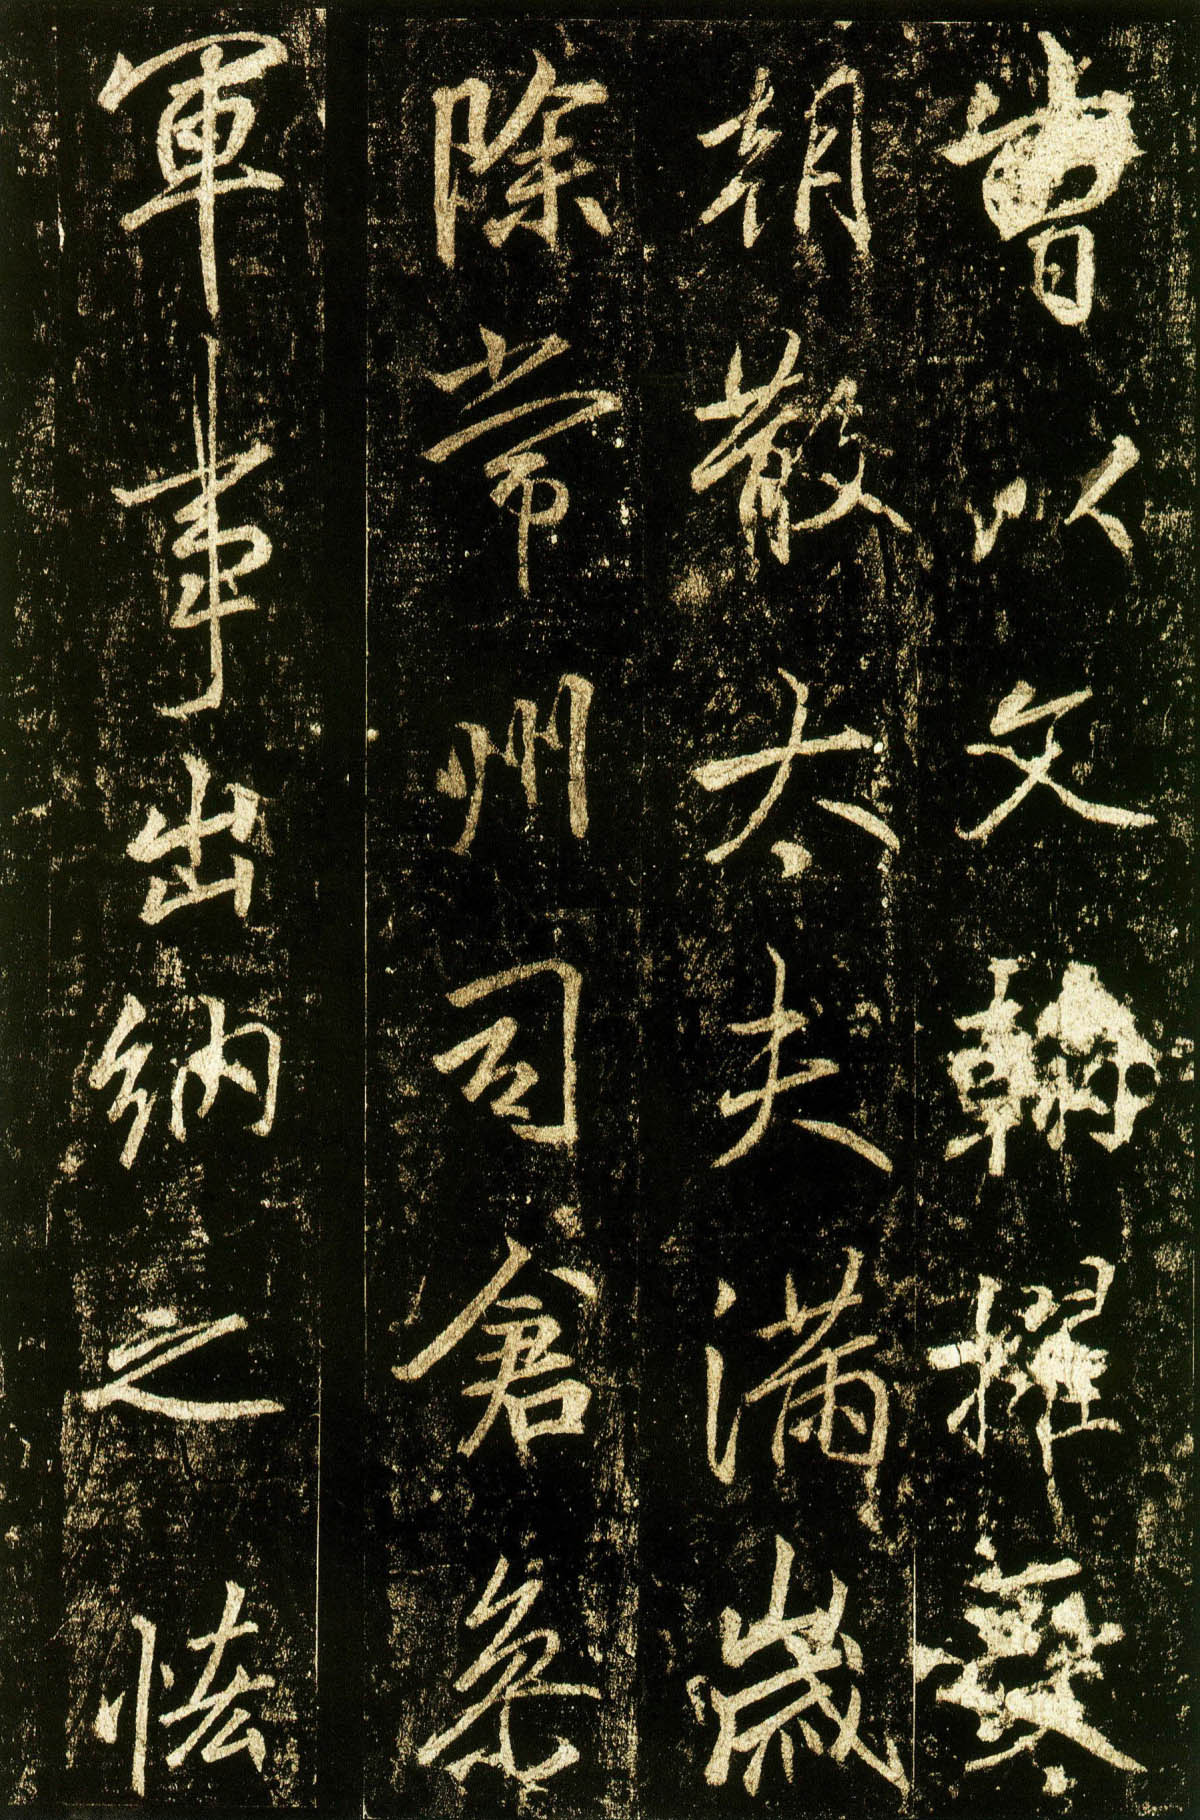 曹以文翰擢
朝散太夫滿歲
除常州司倉參
軍事出納之恡